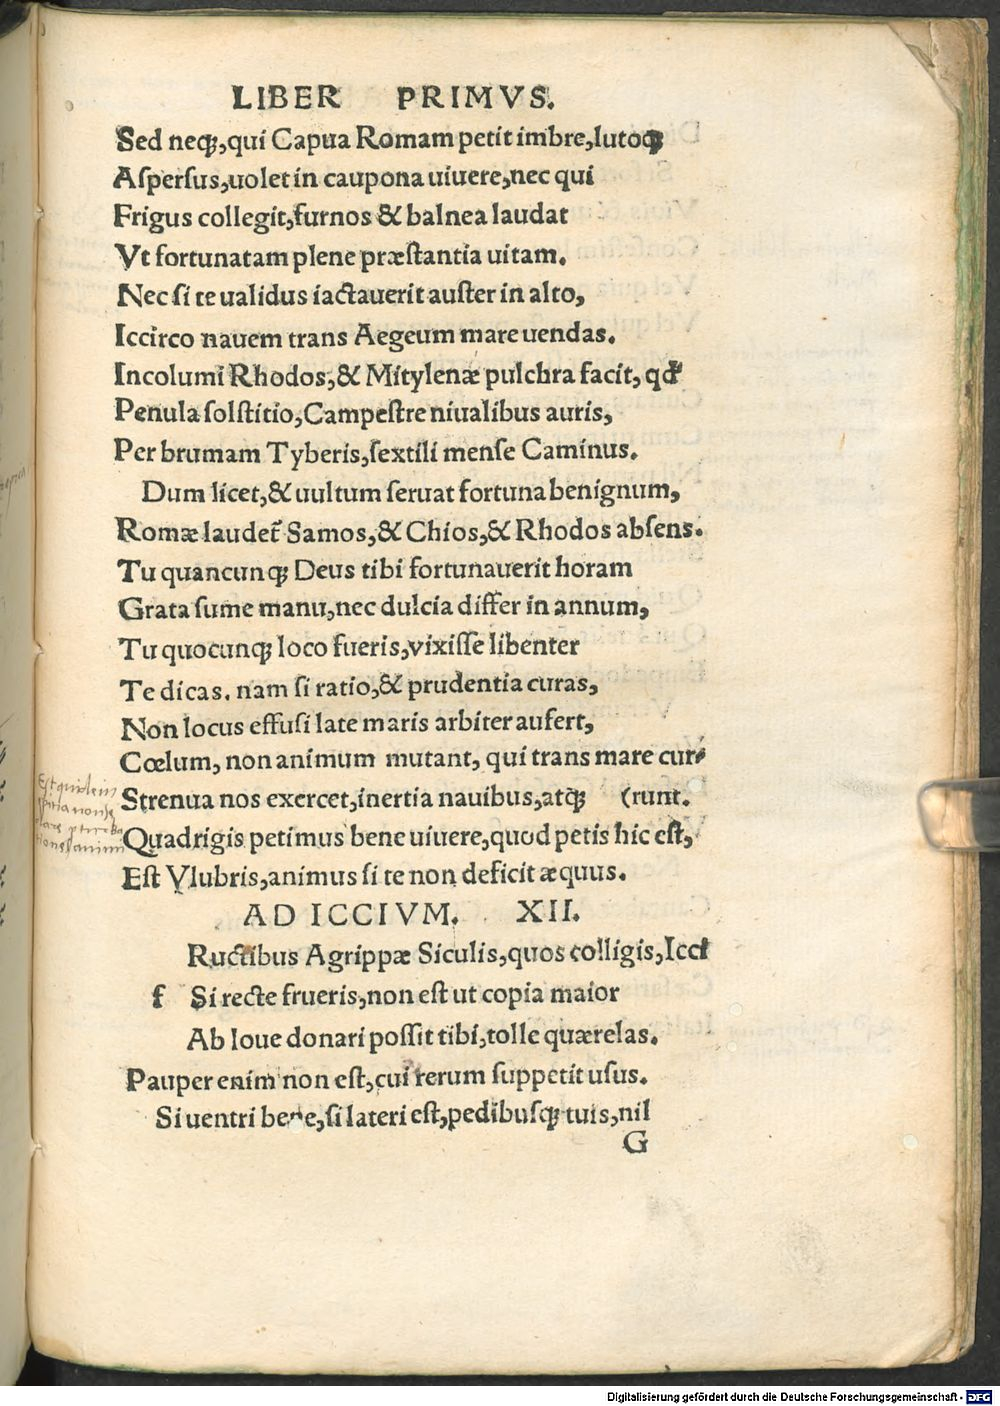 LIBER PRIMVS.
Sed neqꝫ,qui Capua Romam petit imbre,lutoqꝫ
Aſperſus,uolet in caupona uiuere,nec qui
Frigus collegit,furnos & balnea laudat
Vt fortunatam plene præſtantia uitam.
Nec ſi te ualidus iactauerit auſter in alto,
Iccirco nauem trans Aegeum mare uendas.
Incolumi Rhodos,& Mitylenæ pulchra facit, qd'
Penula ſolſtitio,Campeſtre niualibus auris,
Per brumam Tyberis,ſextili menſe Caminus.
Dum licet,& uultum ſeruat fortuna benignum,
Romæ laudet̃ Samos,& Chios,& Rhodos abſens.
Tu quancunqꝫ Deus tibi fortunauerit horam
Grata ſume manu,nec dulcia differ in annum,
Tu quocunqꝫ loco fueris,vixiſſe libenter
Te dicas. nam ſi ratio,& prudentia curas,
Non locus effuſi late maris arbiter aufert,
Cœlum, non animum mutant, qui trans mare cur-
Strenua nos exercet,inertia nauibus,atqꝫ (runt.
Quadrigis petimus bene uiuere,quod petis hic eſt,
Eſt Vlubris,animus ſi te non deficit æquus.
AD ICCIVM. XII.
Ructibus Agrippæ Siculis,quos colligis,Icci
f Si recte frueris,non eſt ut copia maior
Ab Ioue donari poſſit tibi,tolle quærelas.
Pauper enim non eſt,cui rerum ſuppetit uſus.
Si uentri bene,ſi lateri eſt,pedibuſqꝫ tuis,nil
G
Digitalisierung gefördert durch die Deutsche Forschungsgemeinschaft - DFG